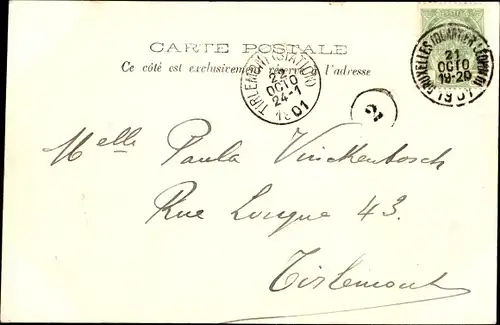 CARTE POSTALE
Ce côté est exclusivement réservé à l'adresse
TIRLEMONT (STATION)
22
OCTO
24-1
1901
BRUXELLES (QUARTIER-LEOPOLD)
21
OCTO
19-20
1901
2
Melle Paula Vinckenbosch
Rue Longue 43.
Tirlemont